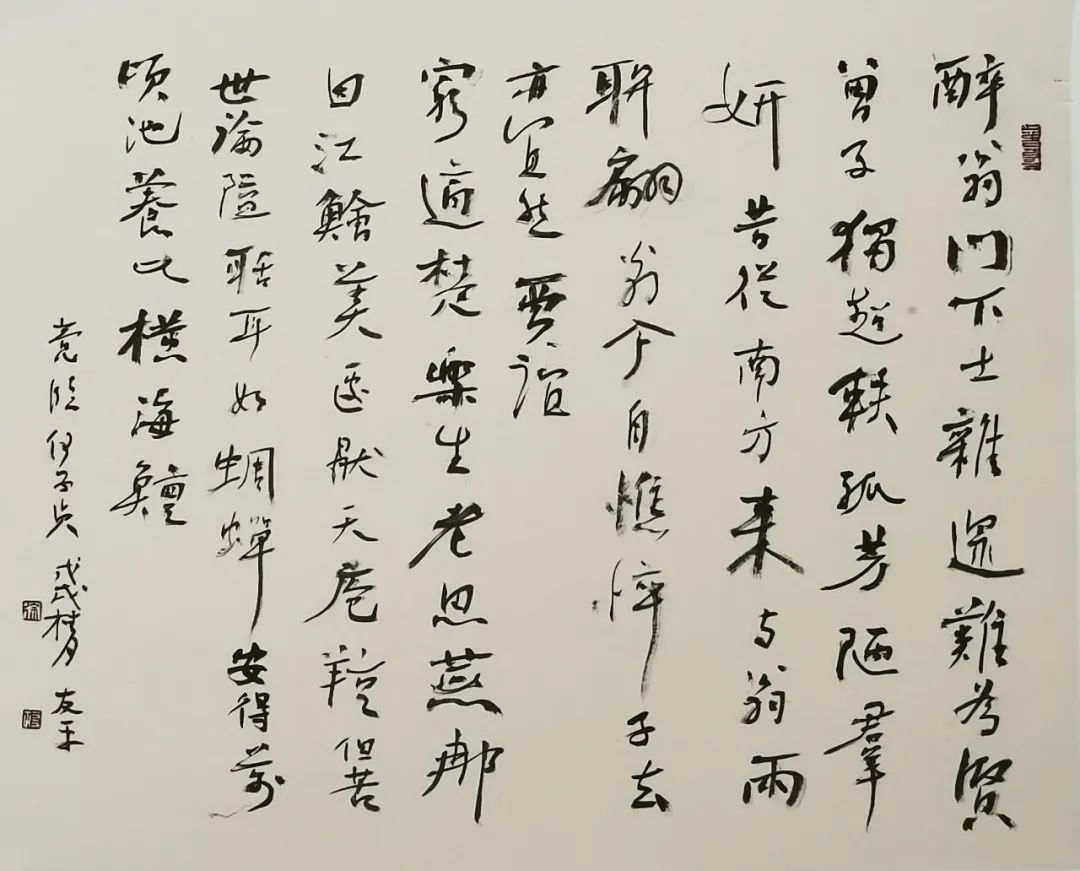 醉翁門下士雜遝難為賢
曾子獨超軼孤芳陋羣
妍昔從南方來与翁兩
聨翩翁今自憔悴子去
亦宜然賈誼
窮適楚樂生老思燕那
因江鱠美遽猒天庖羶但苦
世論隘聒耳如蜩蟬安得萬
頃池養此橫海鱣
戊戌